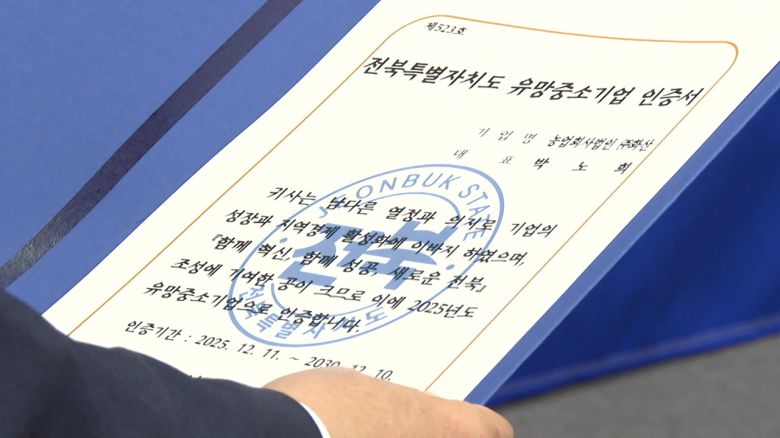 제523호
전북특별자치도 유망중소기업 인증서
기 업 명 농업회사법인 ㈜화산
대 표 박 노 희
귀사는 남다른 열정과 의지로 기업의
성장과 지역경제 활성화에 이바지 하였으며,
『함께 혁신, 함께 성공, 새로운 전북』
조성에 기여한 공이 크므로 이에 2025년도
유망중소기업으로 인증합니다.
인증기간 : 2025. 12. 11. ~ 2030. 12. 10.
JEONBUK STATE
전북
전북특별자치도